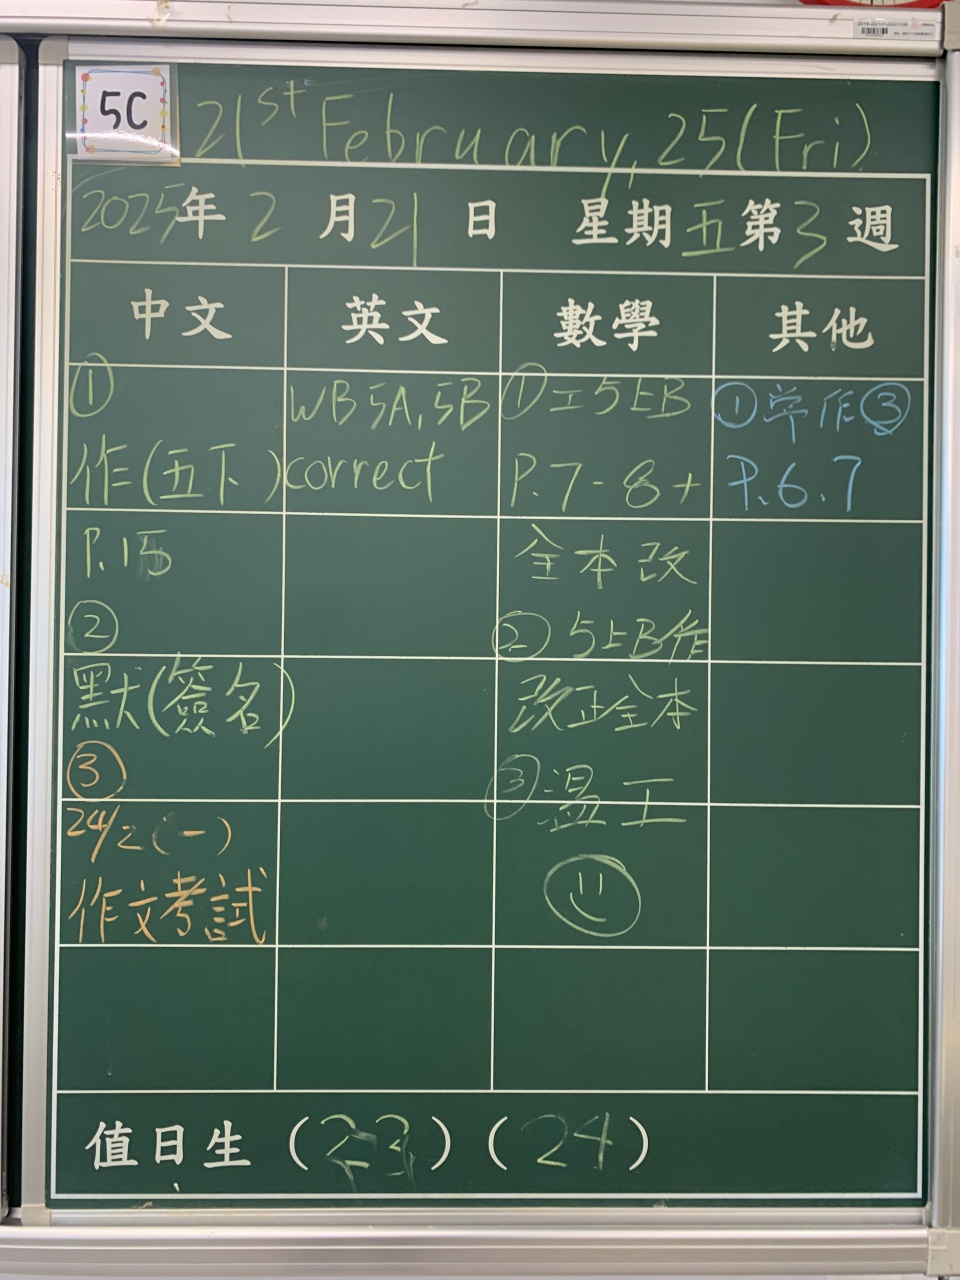 5C
21st February, 25 (Fri)
2025年 2 月 21 日 星期 五 第 3 週
中文 英文 數學 其他
①
作(五下)
P.15
②
默(簽名)
③
24/2 (一)
作文考試
WB 5A, 5B
correct
① 工5上B
P.7-8+
全本改
② 5上B作
改正全本
③ 溫工
①学作③
P.6.7
值日生 (23) (24)